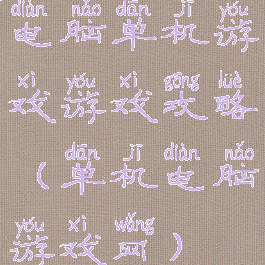 diàn nǎo dān jī yóu
电脑单机游
xì yóu xì gōng lüè
戏游戏攻略
dān jī diàn nǎo
（单机电脑
yóu xì wǎng
游戏网）